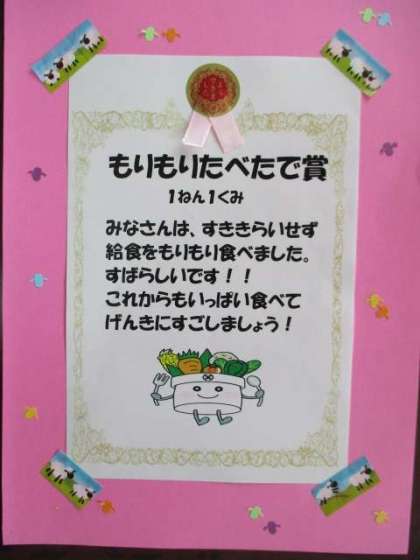 もりもりたべたで賞
1ねん1くみ
みなさんは、すききらいせず
給食をもりもり食べました。
すばらしいです！！
これからもいっぱい食べて
げんきにすごしましょう！